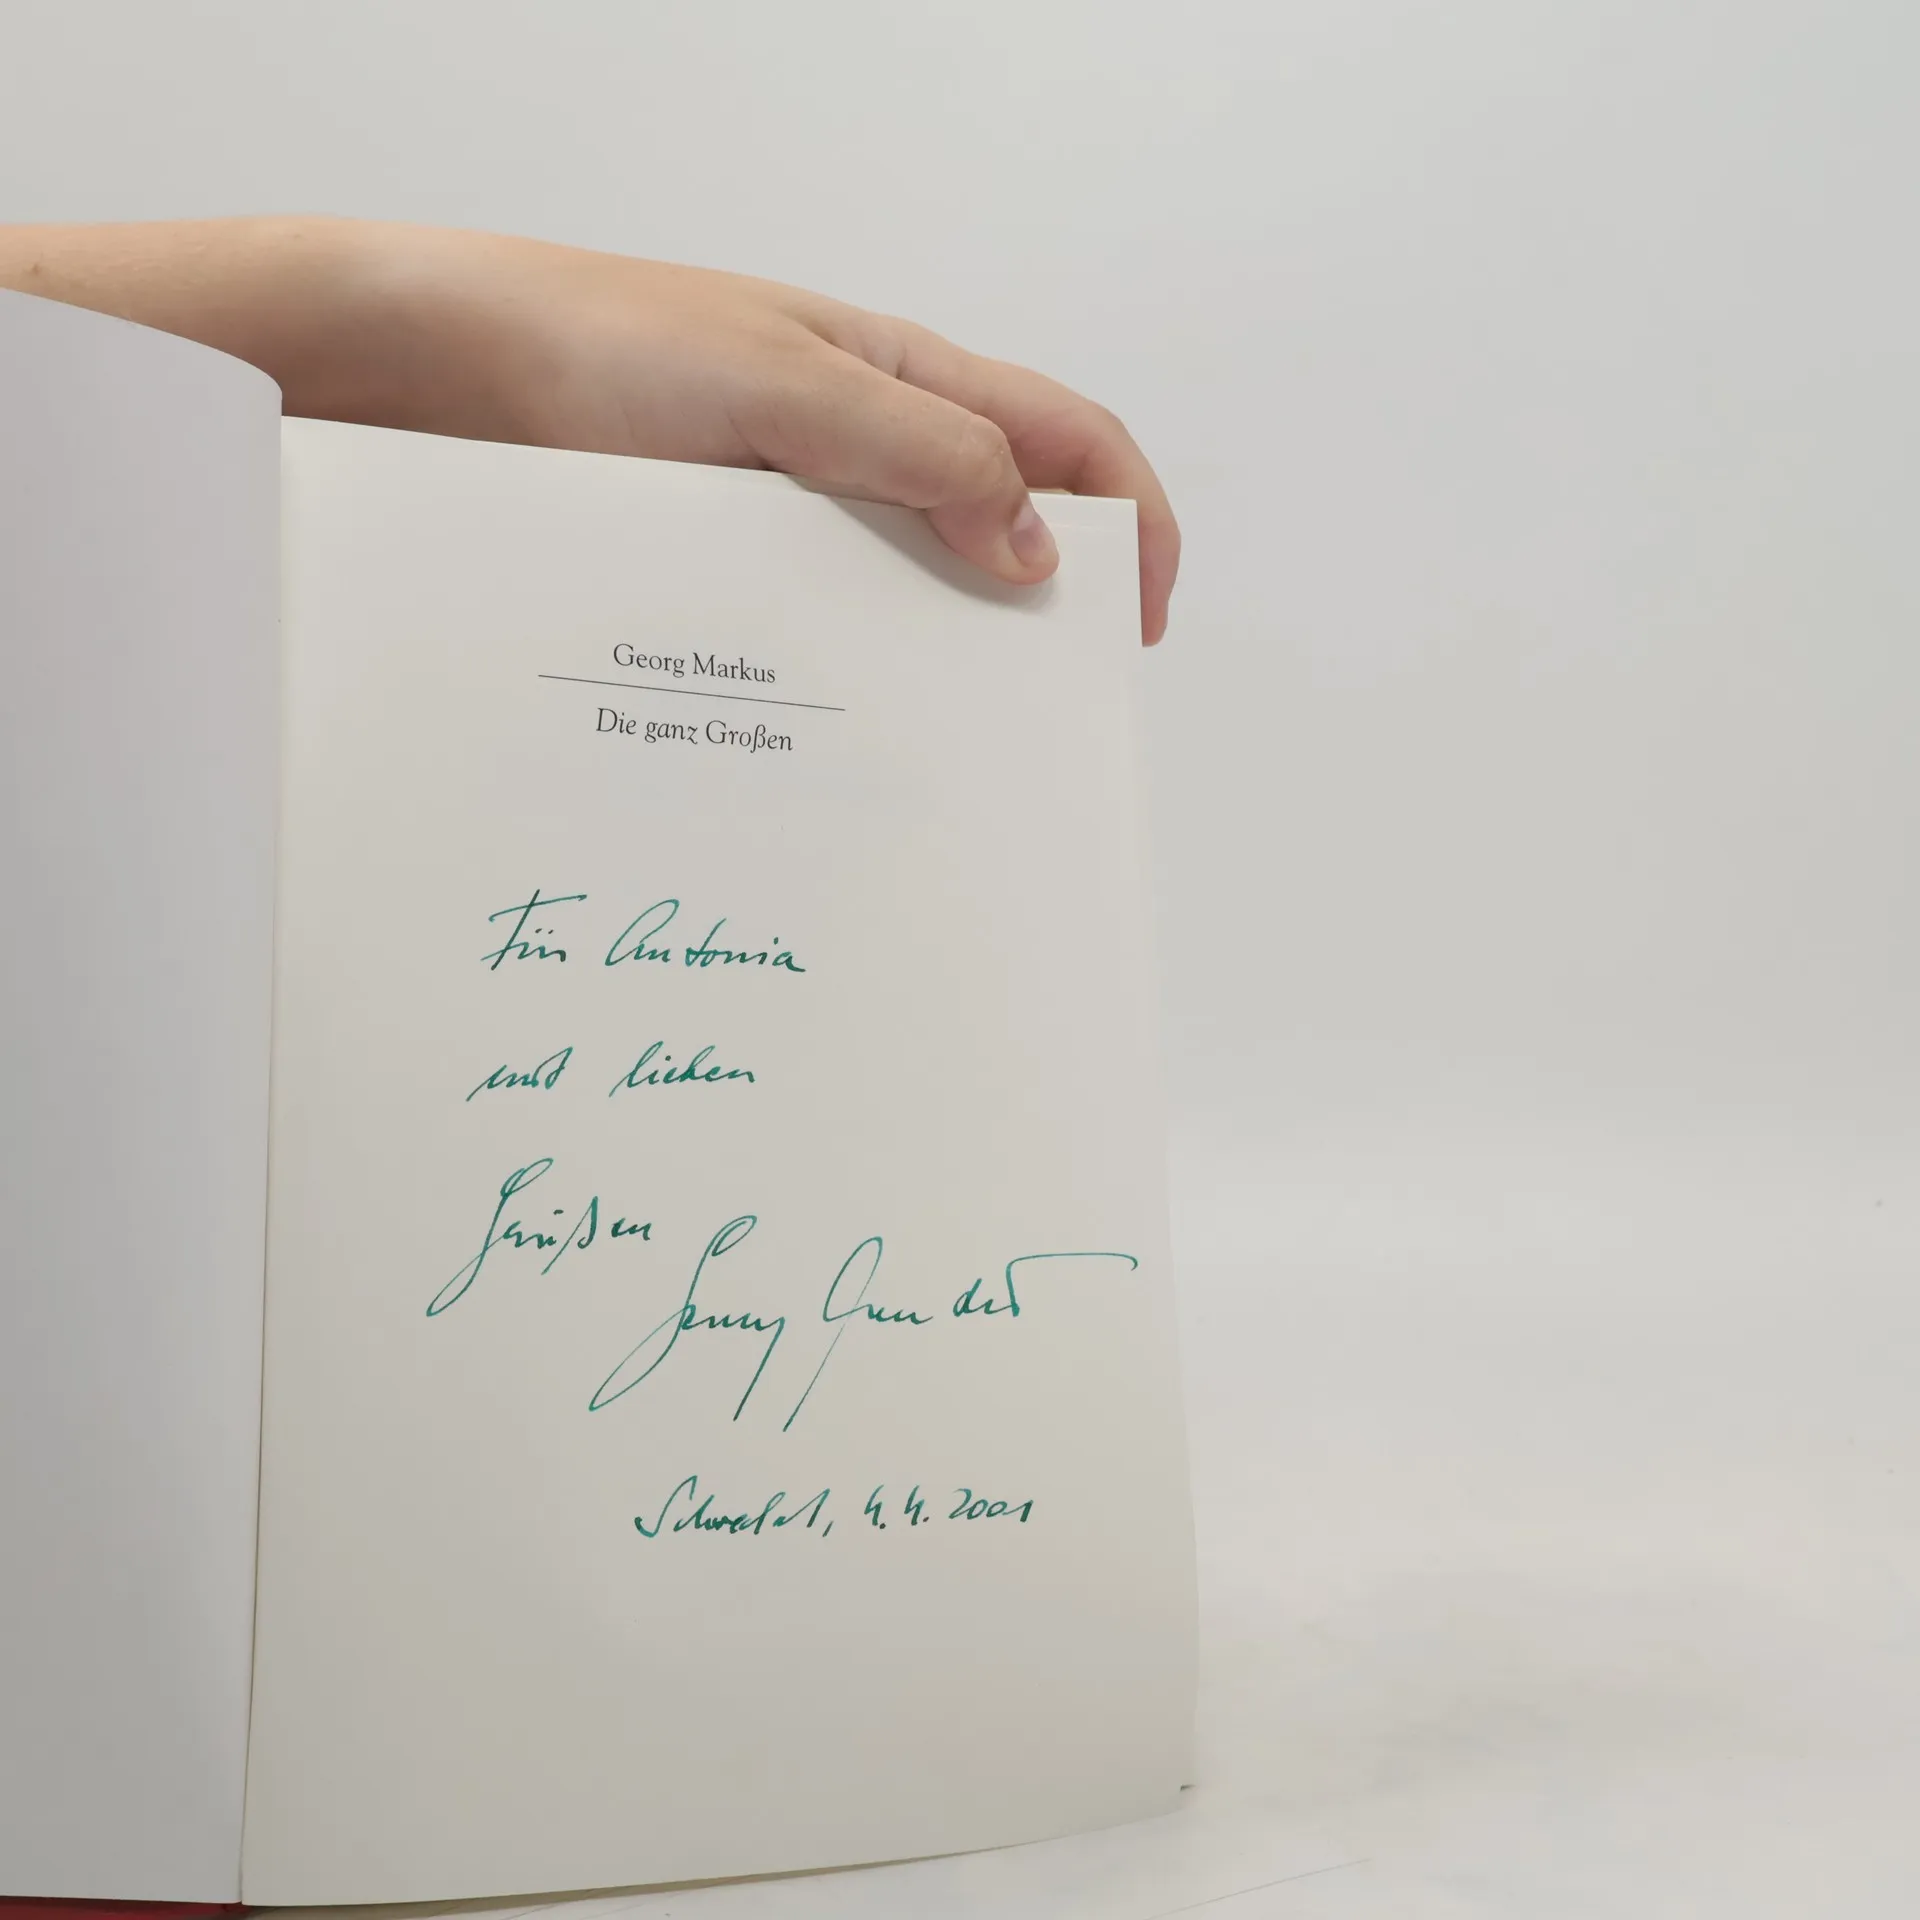 Georg Markus
Die ganz Großen
Für Antonia
mit lieben
Grüßen
Schwechat, 4.4.2001